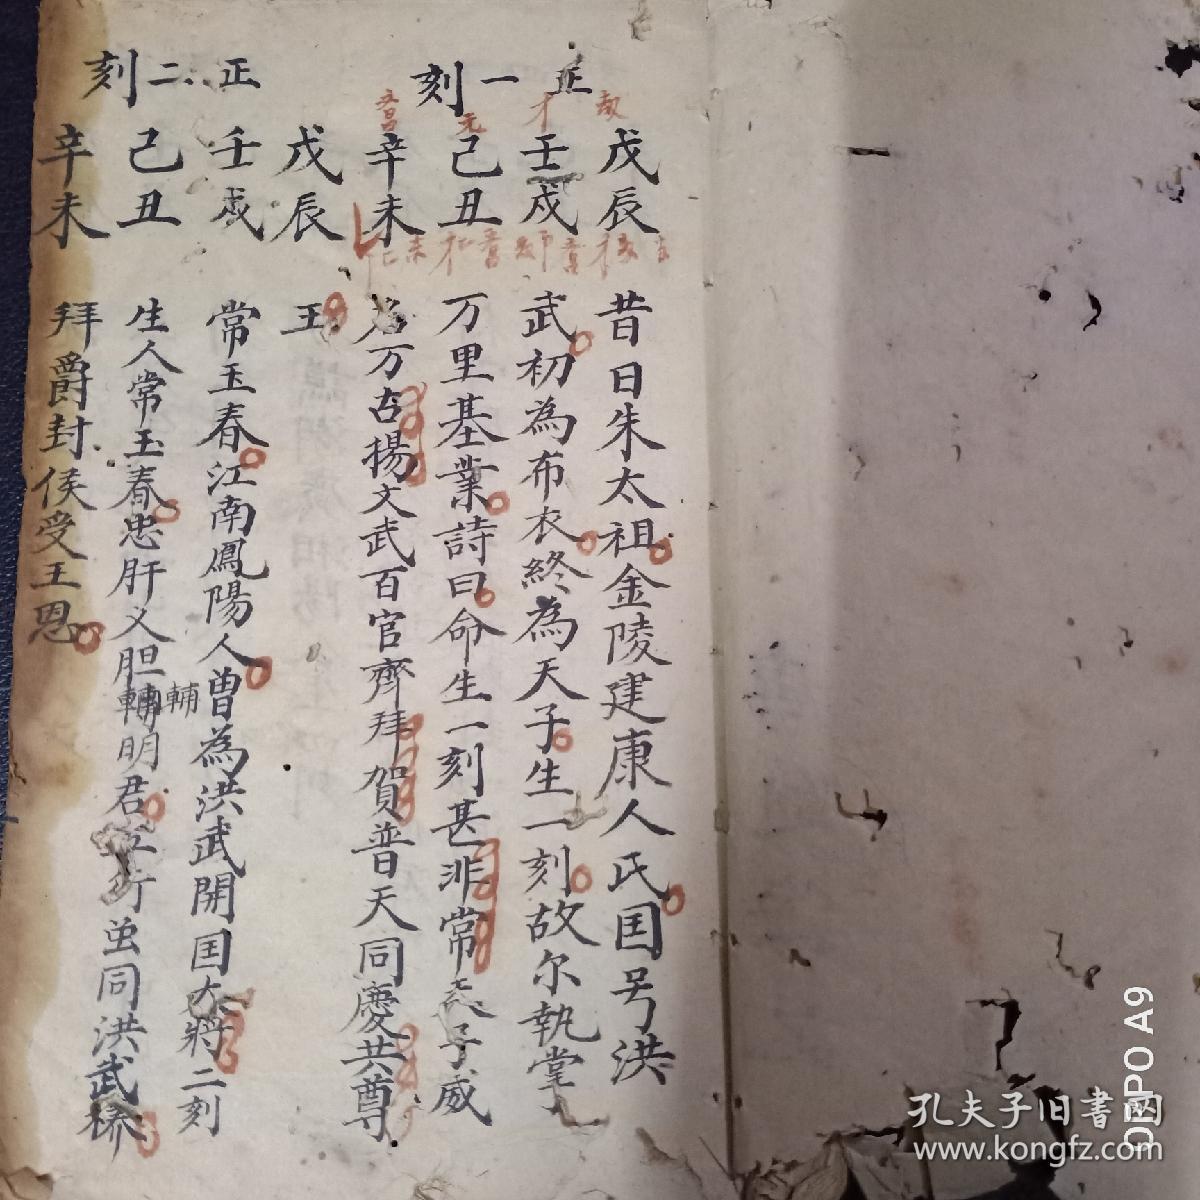 正一刻
戊辰
壬戌
己丑
辛未
昔日朱太祖金陵建康人氏囯号洪
武初為布衣終為天子生一刻故尔執掌
万里基業詩曰命生一刻甚非常天子威
名万古揚文武百官齊拜賀普天同慶共尊
王
正二刻
戊辰
壬戌
己丑
辛未
常玉春江南鳳陽人曽為洪武開囯大將二刻
生人常玉春忠肝义胆輔明君五行虽同洪武
拜爵封侯受王恩
輔
孔夫子旧書网
www.kongfz.com
OPPO A9